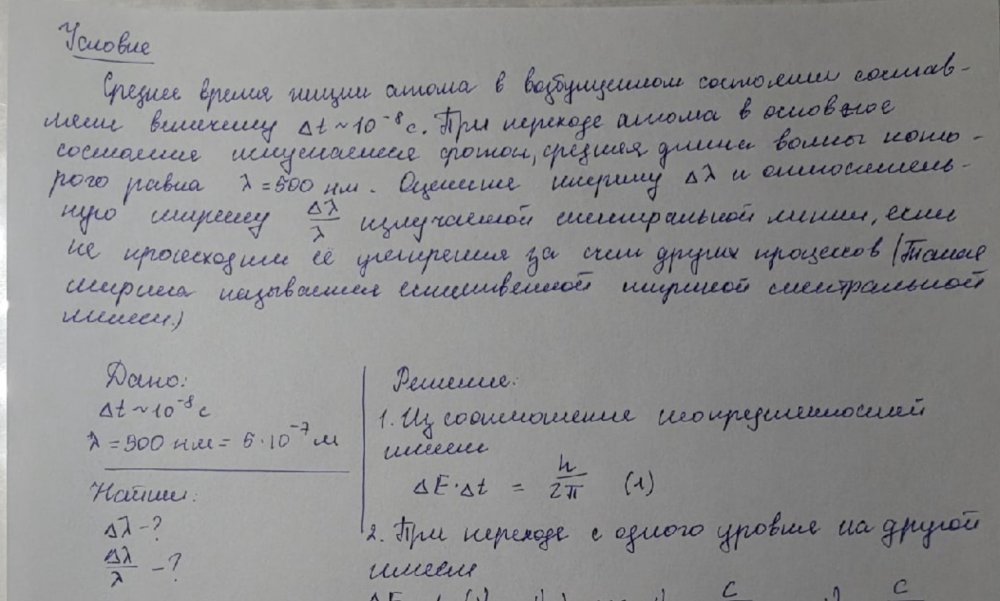 Условие
Среднее время жизни атома в возбужденном состоянии состав-
ляет величину Δt ~ 10⁻⁸ с. При переходе атома в основное
состояние испускается фотон, средняя длина волны кото-
рого равна λ = 500 нм. Оцените ширину Δλ и относитель-
ную ширину Δλ/λ излучаемой спектральной линии, если
не происходит её уширения за счет других процессов (Такая
ширина называется естественной шириной спектральной
линии.)
Дано:
Δt ~ 10⁻⁸ с
λ = 500 нм = 5·10⁻⁷ м
Найти:
Δλ - ?
Δλ/λ - ?
Решение:
1. Из соотношение неопределенностей
имеем
ΔE·Δt = h/2π (1)
2. При переходе с одного уровня на другой
имеем